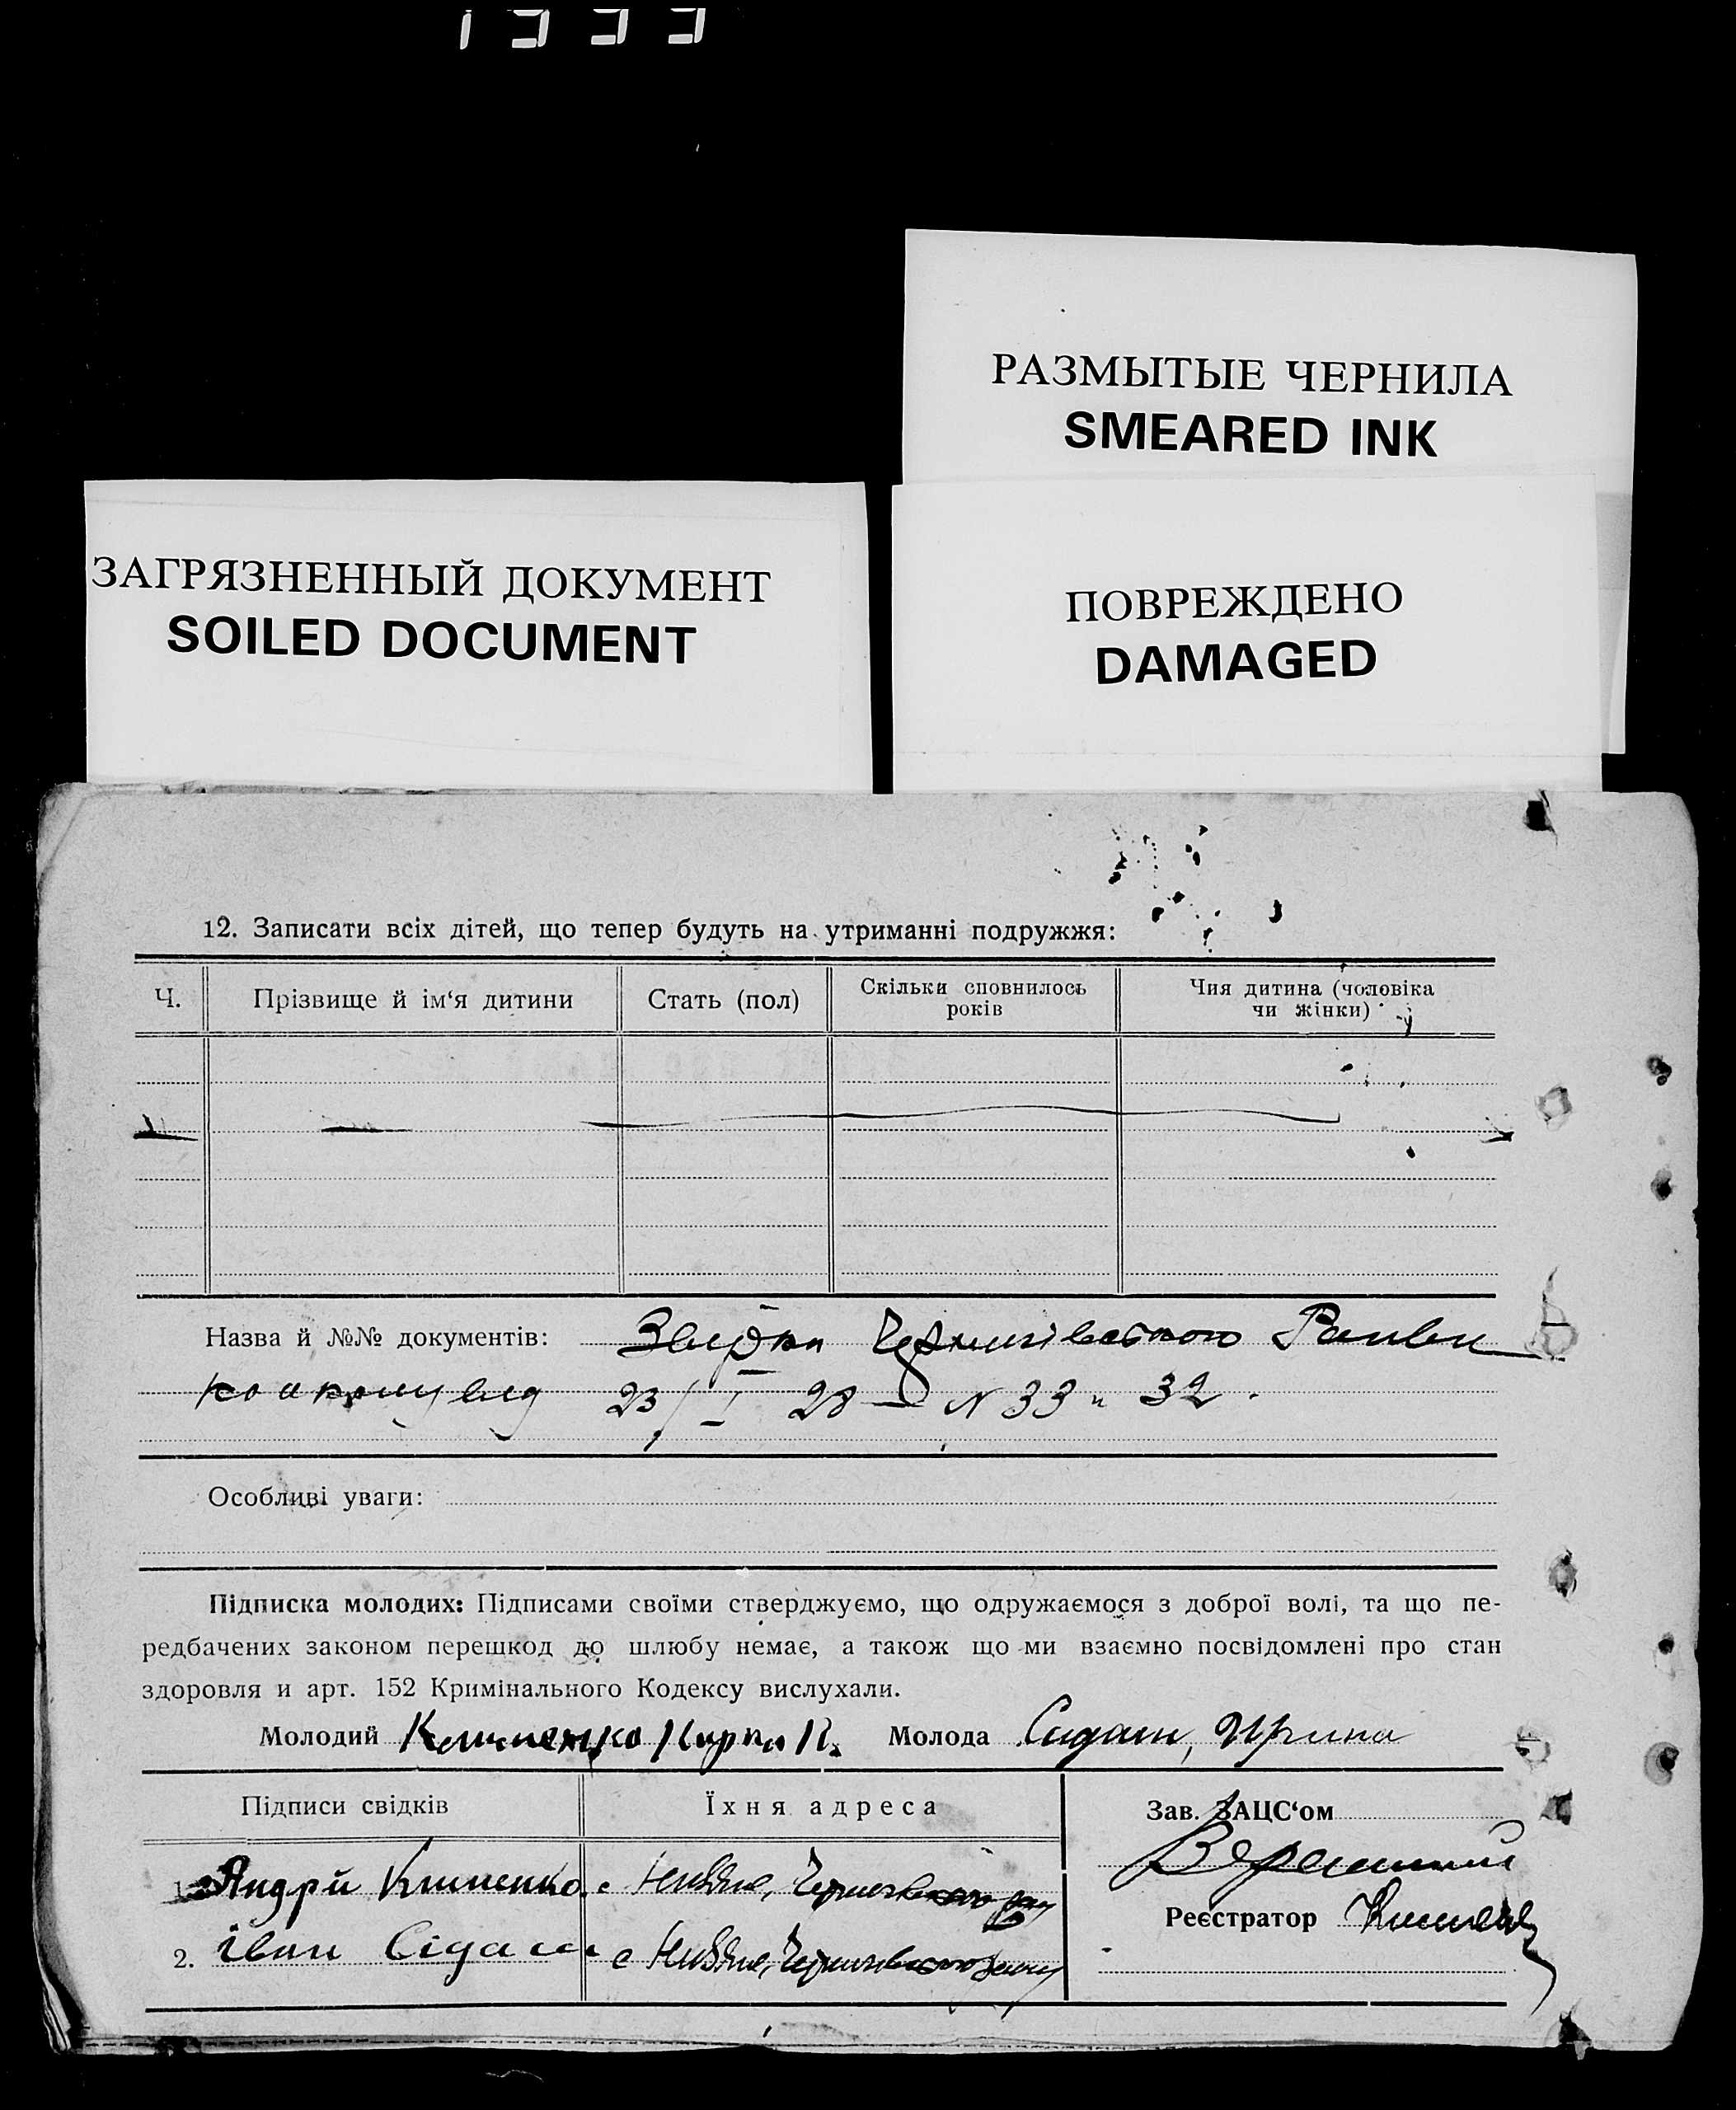 РАЗМЫТЫЕ ЧЕРНИЛА
SMEARED INK
ЗАГРЯЗНЕННЫЙ ДОКУМЕНТ
SOILED DOCUMENT
ПОВРЕЖДЕНО
DAMAGED
12. Записати всіх дітей, що тепер будуть на утриманні подружжя:
Ч.
Прізвище й ім‘я дитини
Стать (пол)
Скільки сповнилось
років
Чия дитина (чоловіка
чи жінки)
Назва й №№ документів: Чернигівського
23/I 28 N 33 и 32.
Особливі уваги:
Підписка молодих: Підписами своїми стверджуємо, що одружаємося з доброї волі, та що пе-
редбачених законом перешкод до шлюбу немає, а також що ми взаємно посвідомлені про стан
здоровля и арт. 152 Кримінального Кодексу вислухали.
Молодий Клименко Молода Сидаш, Ирина
Підписи свідків
Їхня адреса
Зав. ЗАЦС‘ом
1. Андрій Клименко
2. Іван Сідаш
Реєстратор